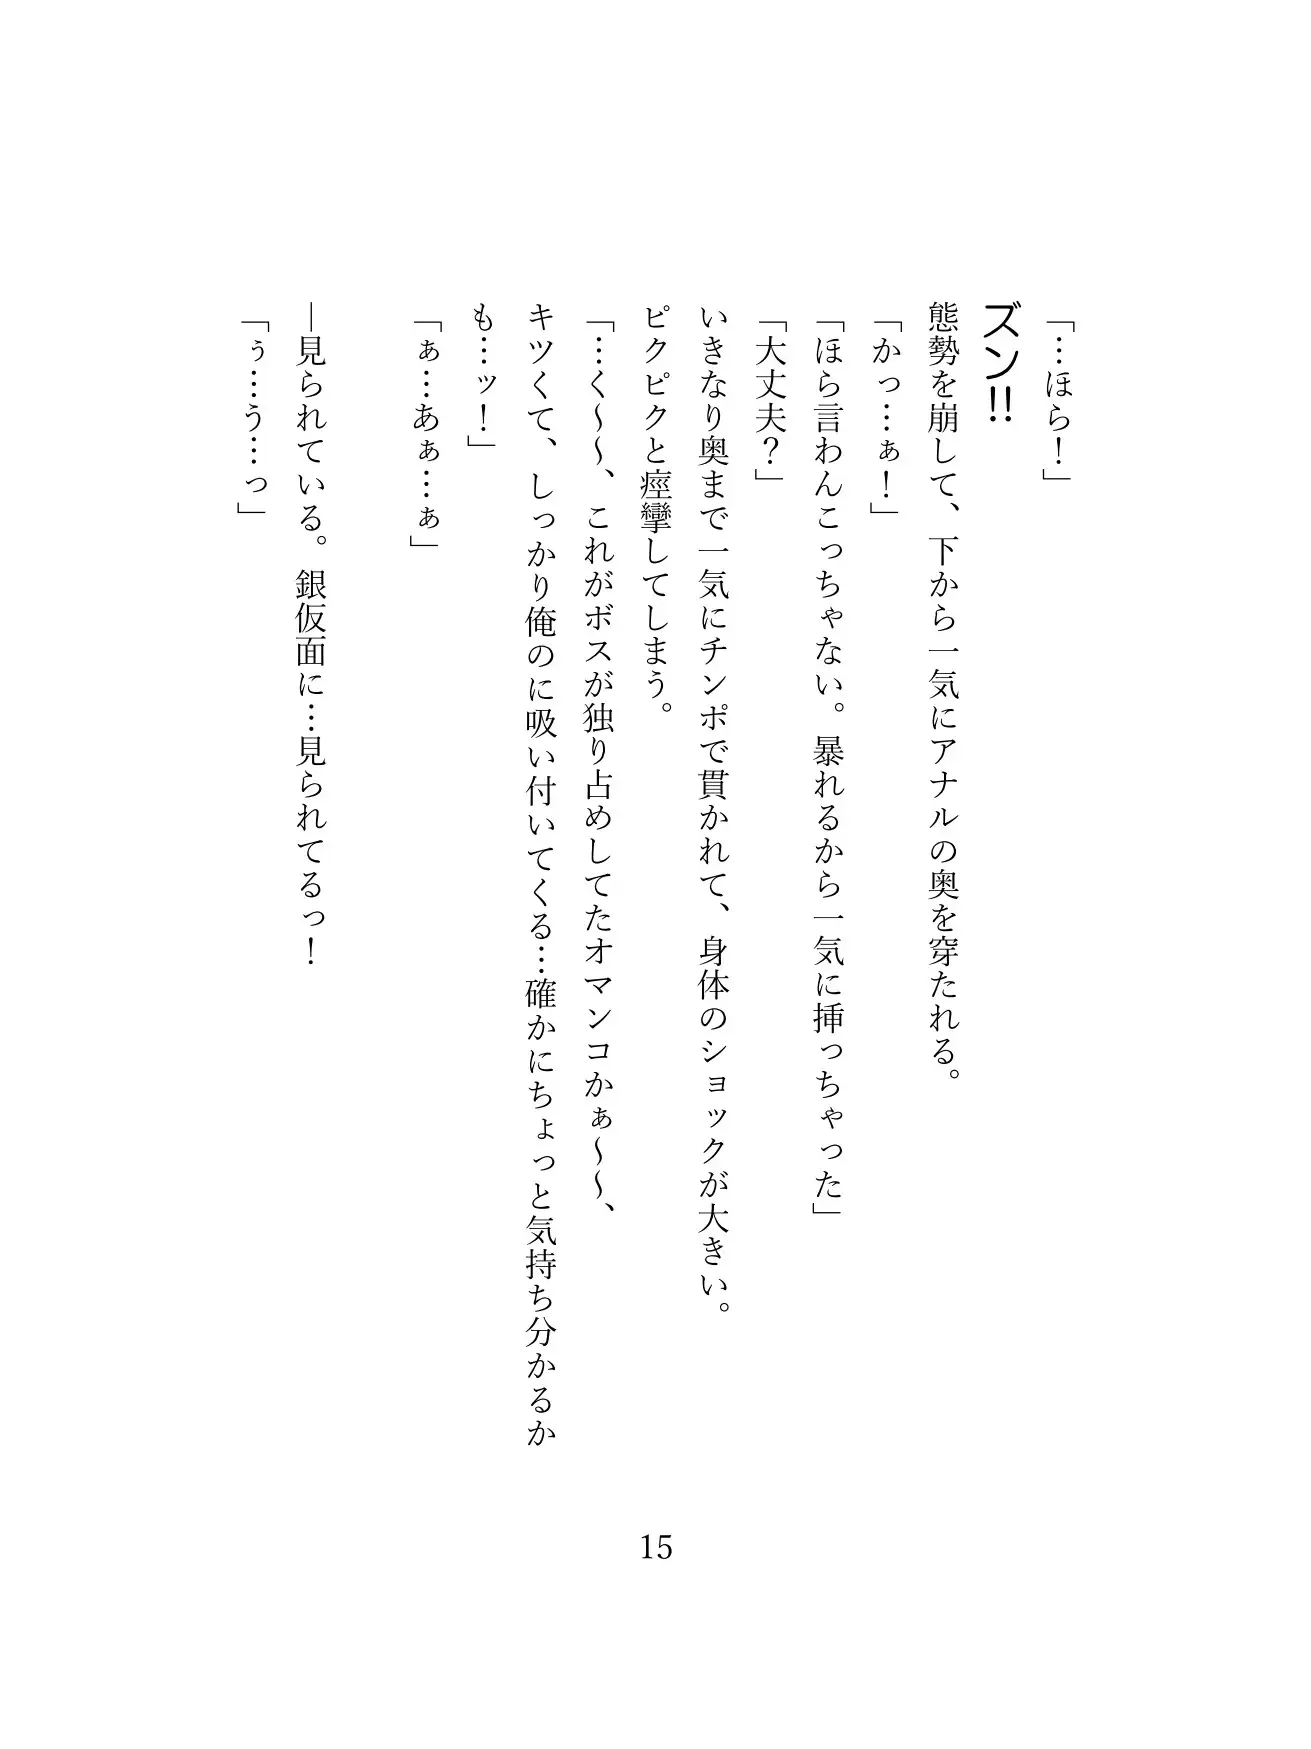 「…ほら！」
ズン!!
態勢を崩して、下から一気にアナルの奥を穿たれる。
「かっ…ぁ！」
「ほら言わんこっちゃない。暴れるから一気に挿っちゃった」
「大丈夫？」
いきなり奥まで一気にチンポで貫かれて、身体のショックが大きい。
ピクピクと痙攣してしまう。
「…く～～、これがボスが独り占めしてたオマンコかぁ～～、
キツくて、しっかり俺のに吸い付いてくる…確かにちょっと気持ち分かるか
も…ッ！」
「ぁ…あぁ…ぁ」
―見られている。銀仮面に…見られてるっ！
「ぅ…う…っ」
15